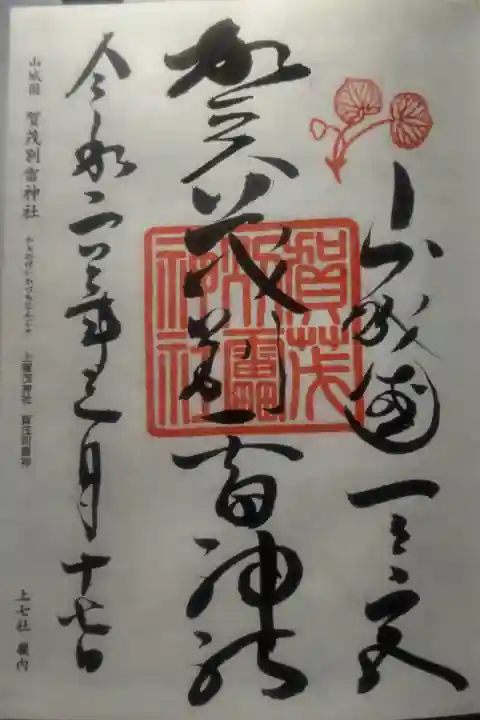 山城國一之宮
賀茂別雷神社
賀茂別雷神社
令和二年
月十七日
山城國 賀茂別雷神社 かもわけいかづちじんじゃ 上賀茂神社 賀茂別雷神
上七社 畿内